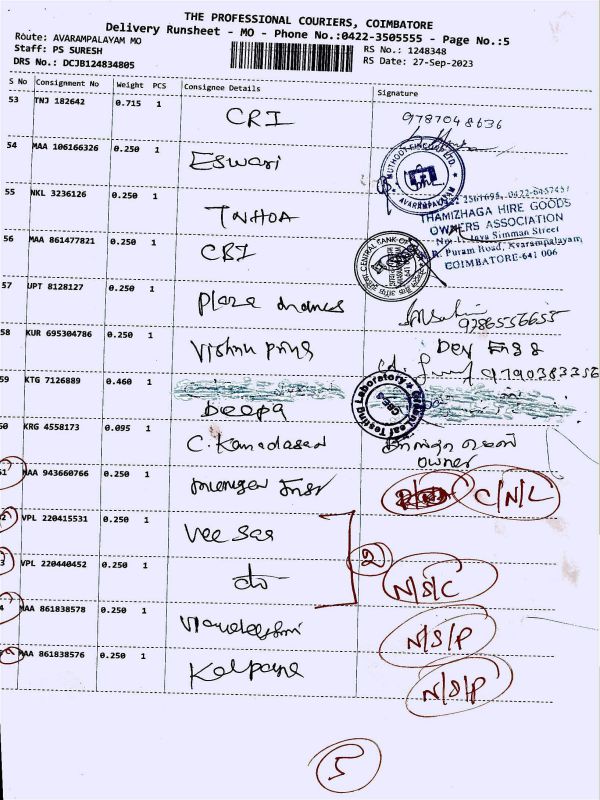 THE PROFESSIONAL COURIERS, COIMBATORE
Delivery Runsheet - MO - Phone No.:0422-3505555 - Page No.:5
Route: AVARAMPALAYAM MO
RS No.: 1248348
Staff: PS SURESH
RS Date: 27-Sep-2023
DRS No.: DCJB124834805
S No Consignment No Weight PCS Consignee Details Signature
53 TNJ 182642 0.715 1 CRI 9787048636
54 MAA 106166326 0.250 1 Eswari
MUTHOOT FINCORP LTD.
AVARAMPALAYAM
55 NKL 3236126 0.250 1 TNHOA
THAMIZHAGA HIRE GOODS
OWNERS ASSOCIATION
Jaya Simman Street
Puram Road, Avarampalayam,
COIMBATORE-641 006
56 MAA 861477821 0.250 1 CBI
CENTRAL BANK OF
57 UPT 8128127 0.250 1 9786556655
58 KUR 695304786 0.250 1 Vishnu
59 KTG 7126889 0.460 1 Deepa
Leaf Testing Laboratory
CBE-4
60 KRG 4558173 0.095 1 C. Kanadasan
owner
61 MAA 943660766 0.250 1 C/N/L
62 VPL 220415531 0.250 1 Vee Sar
2
63 VPL 220440452 0.250 1 do N/S/C
64 MAA 861838578 0.250 1 N/S/P
MAA 861838576 0.250 1 Kalpana N/S/P
5